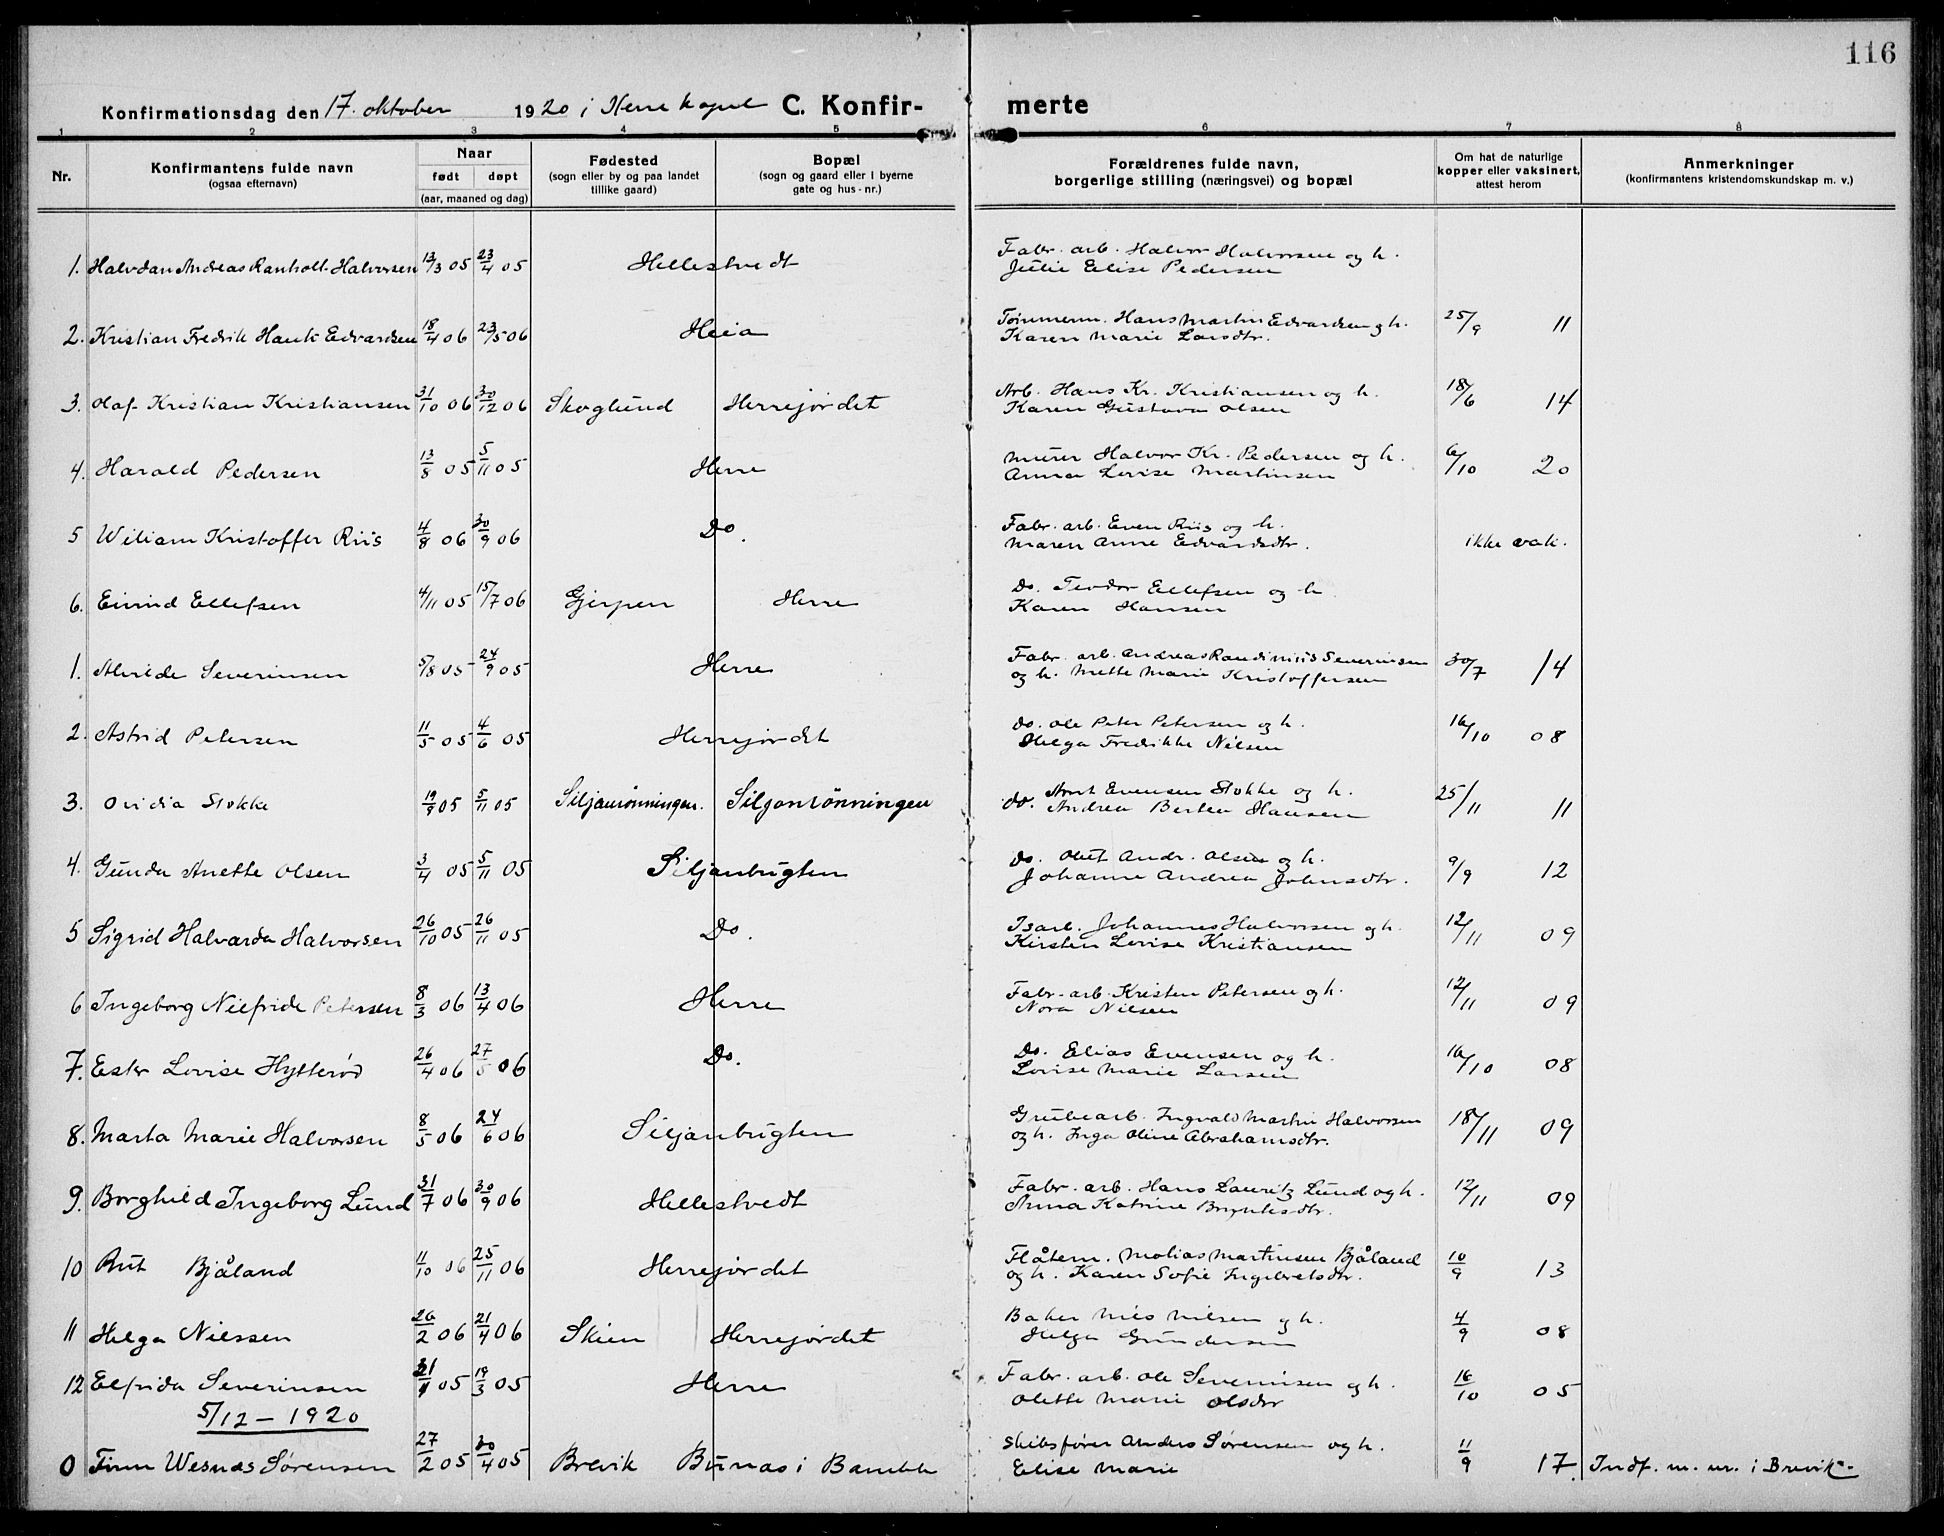 116
Konfirmationsdag den 17. oktober 1920 i Herre kapel C. Konfir- merte
1 2 3 4 5 6 7 8
Nr. Konfirmantens fulde navn (ogsaa efternavn) Naar født døpt (aar, maaned og dag) Fødested (sogn eller by og paa landet tillike gaard) Bopæl (sogn og gaard eller i byerne gate og hus-nr.) Forældrenes fulde navn, borgerlige stilling (næringsvei) og bopæl Om hat de naturlige kopper eller vaksinert, attest herom Anmerkninger (konfirmantens kristendomskundskap m. v.)
1. Halvdan Andreas Ranholt Halvorsen 13/3 05 23/4 05 Hellestvedt Fabr. arb. Halvor Halvorsen og h.
Julie Elise Pedersen
2. Kristian Fredrik Hauk Edvardsen 18/4 06 23/5 06 Heia Tømmerm. Hans Martin Edvardsen og h. 25/9 11
Karen Marie Larsdtr.
3. Olaf Kristian Kristiansen 31/10 06 30/12 06 Skoglund Herrejordet Arb. Hans Kr. Kristiansen og h. 18/6 14
Karen Gustava Olsen
4. Harald Pedersen 13/8 05 5/11 05 Herre Murer Halvor Kr. Pedersen og h. 6/10 20
Anna Lovise Martinsen
5 Wiliam Kristoffer Riis 4/8 06 30/9 06 Do. Fabr. arb. Even Riis og h. ikke vak.
Maren Anne Edvardsdtr.
6. Eivind Ellefsen 4/11 05 15/7 06 Gjerpen Herre Do. Teodor Ellefsen og h
Karen Hansen
1. Alvilde Severinsen 5/8 05 24/9 05 Herre Fabr. arb. Andreas Randinius Severinsen 30/7 14
og h. Mette Marie Kristoffersen
2. Astrid Petersen 11/5 05 4/6 05 Herrejordet Do. Ole Peter Petersen og h. 16/10 08
Helga Fredrikke Nilsen
3. Ovidia Stokke 19/9 05 5/11 05 Siljanrønningen. Siljanrønningen do. Arnt Evensen Stokke og h. 25/11 11
Andrea Bertea Hansen
4. Gunda Anette Olsen 3/4 05 5/11 05 Siljanbugten Do. Olut Andr. Olsen og h. 9/9 12
Johanne Andrea Johnsdtr.
5 Sigrid Halvarda Halvorsen 26/10 05 26/11 05 Do. Isarb. Johannes Halvorsen og h. 12/11 09
Kirsten Lovise Kristiansen
6 Ingeborg Nilfride Petersen 8/3 06 13/4 06 Herre Fabr. arb. Kristen Petersen og h. 12/11 09
Nora Nilsen
7. Ester Lovise Hytterød 26/4 06 27/5 06 Do. Do. Elias Evensen og h. 16/10 08
Lovise Marie Larsen
8. Marta Marie Halvorsen 8/5 06 24/6 06 Siljanbugten Grubearb. Ingvald Martin Halvorsen 18/11 09
og h. Inga Oline Abrahamsdtr.
9. Borghild Ingeborg Lund 31/7 06 30/9 06 Hellestvedt Fabr. arb. Hans Lauritz Lund og h. 12/11 09
Anna Katrine Bryntesdtr.
10 Rut Bjåland 11/10 06 25/11 06 Herrejordet Flåtem. Matias Martinsen Bjåland 10/9 13
og h. Karen Sofie Ingebretsdtr.
11 Helga Nilssen 26/2 06 21/4 06 Skien Herrejordet Baker Nils Nilsen og h. 4/9 08
Helga Gundersen
12 Elfrida Severinsen 05 19/3 05 Herre Fabr. arb. Ole Severinsen og h. 16/10 05
Olette Marie Olsdtr
5/12 - 1920
0 Finn Wesnæs Sørensen 27/2 05 30/4 05 Brevik Bunæs i Bamble Skibsfører Anders Sørensen og h. 11/9 17. Indf. m. nr. i Brevik.
Elise Marie